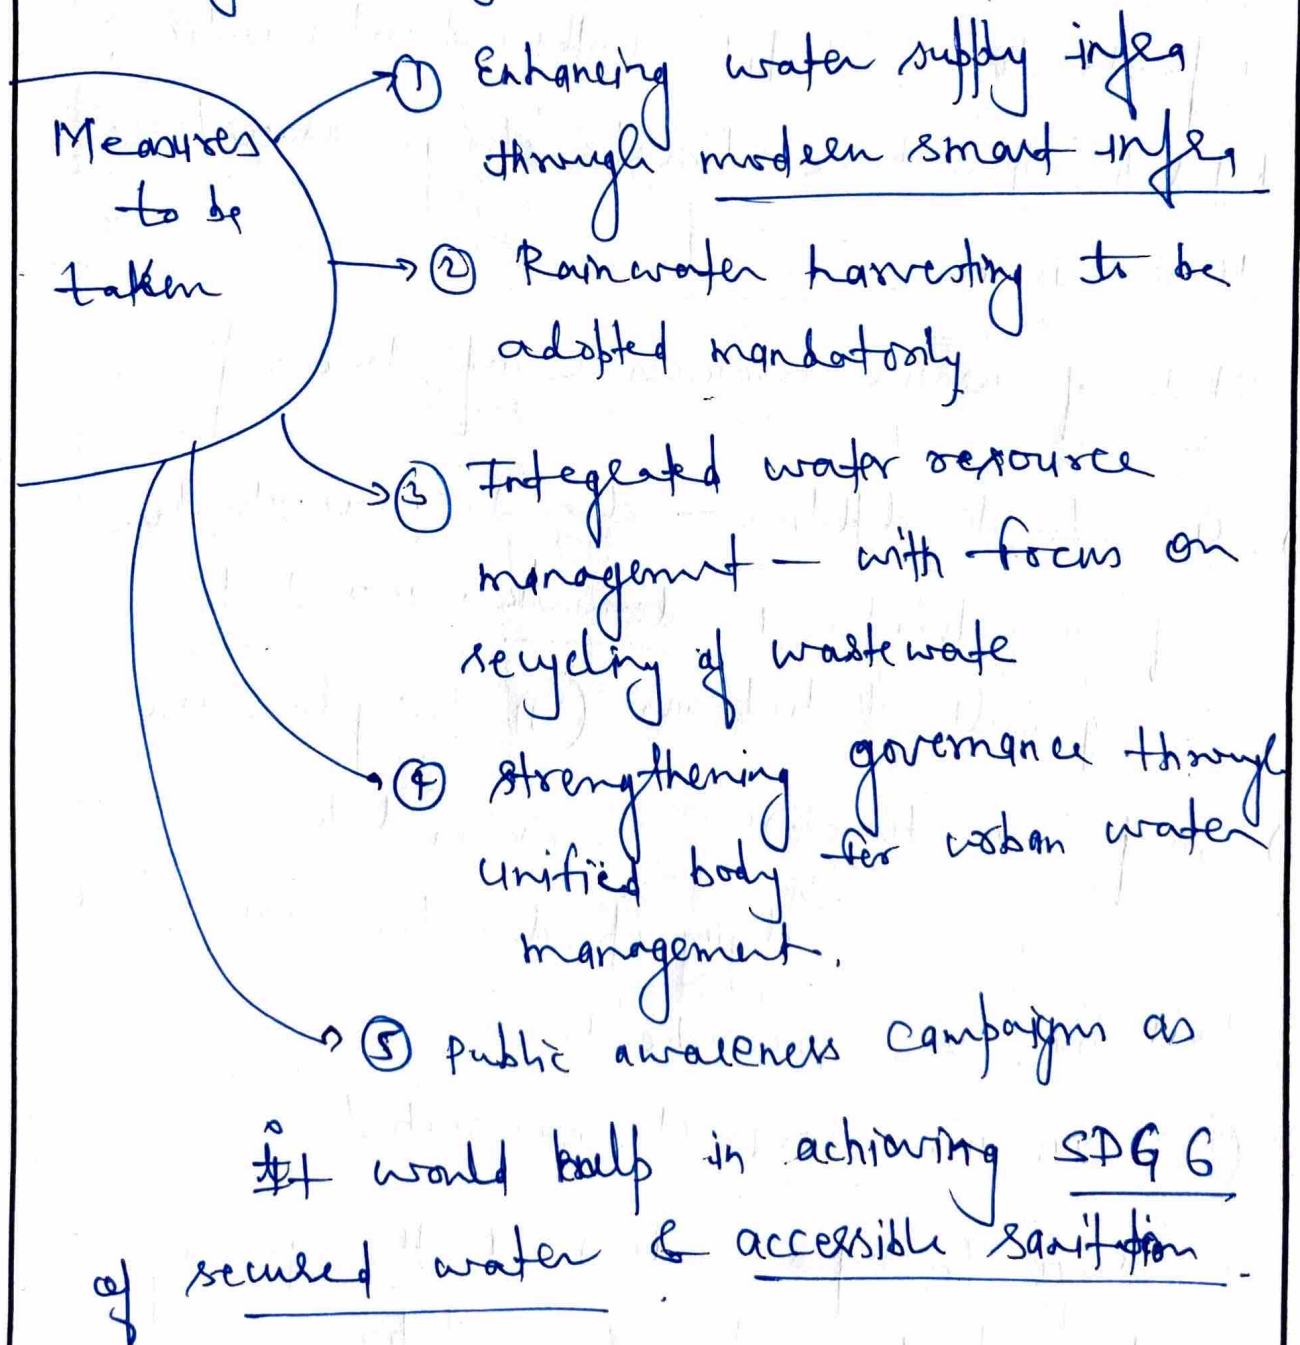 Measures
to be
taken
① Enhancing water supply infra
through modern smart infra
② Rainwater harvesting to be
adopted mandatorily
③ Integrated water resource
managemnt — with focus on
recycling of wastewate
④ strengthening governance through
unified body for urban water
management.
⑤ Public awareness campaigns as
it would help in achieving SDG 6
of secured water & accessible sanitation.